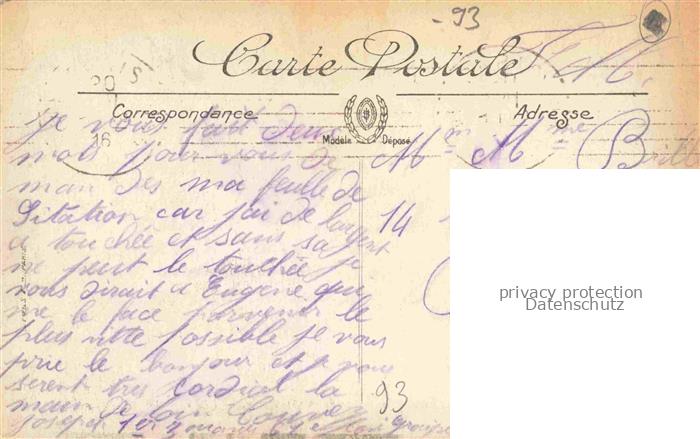 - 93
F. M.
Carte Postale
Correspondance
Adresse
Modèle Déposé
Je vous fait deux
mots pour vous de
man des ma feulle de
Sitation car j'ai de l'argent
a touchée et sans sa je
ne peut le touchée je
vous dirait a Eugene que
me le face parvenir le
plus vitte possible je vous
prie le bonjour et je vous
serent tres cordial la
main de loin
Joseph 1er
groupe
M M me
14
93
privacy protection
Datenschutz